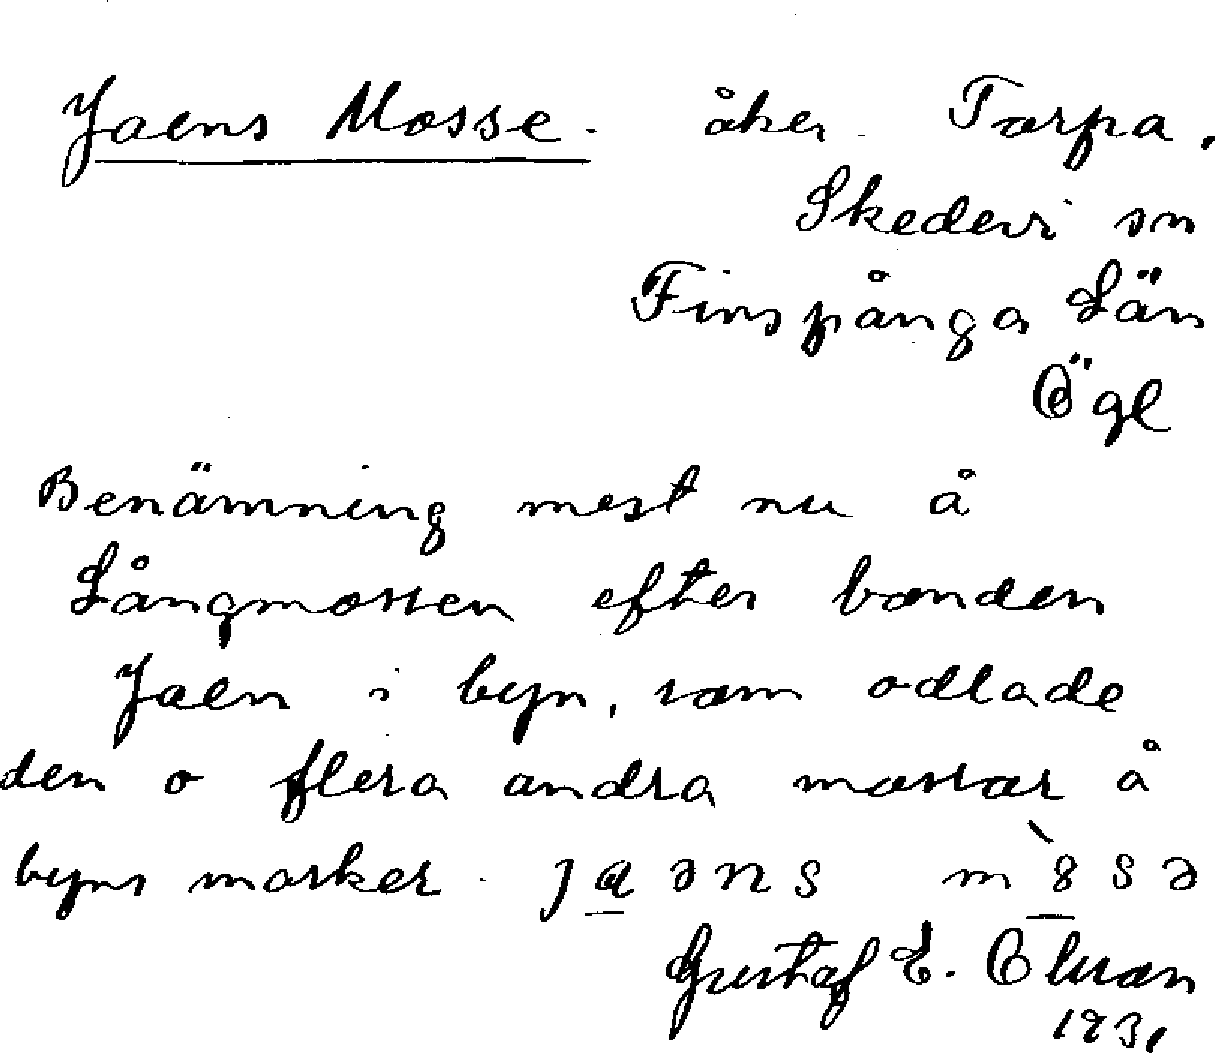 Jaens Mosse. åker. Torpa,
Skedevi sn
Finspånga Län
Ögl
Benämning mest nu å
Långmossen efter bonden
Jaen i byn, som odlade
den o flera andra mossar å
byns marker. jaəns m8sə
Gustaf E.
1931